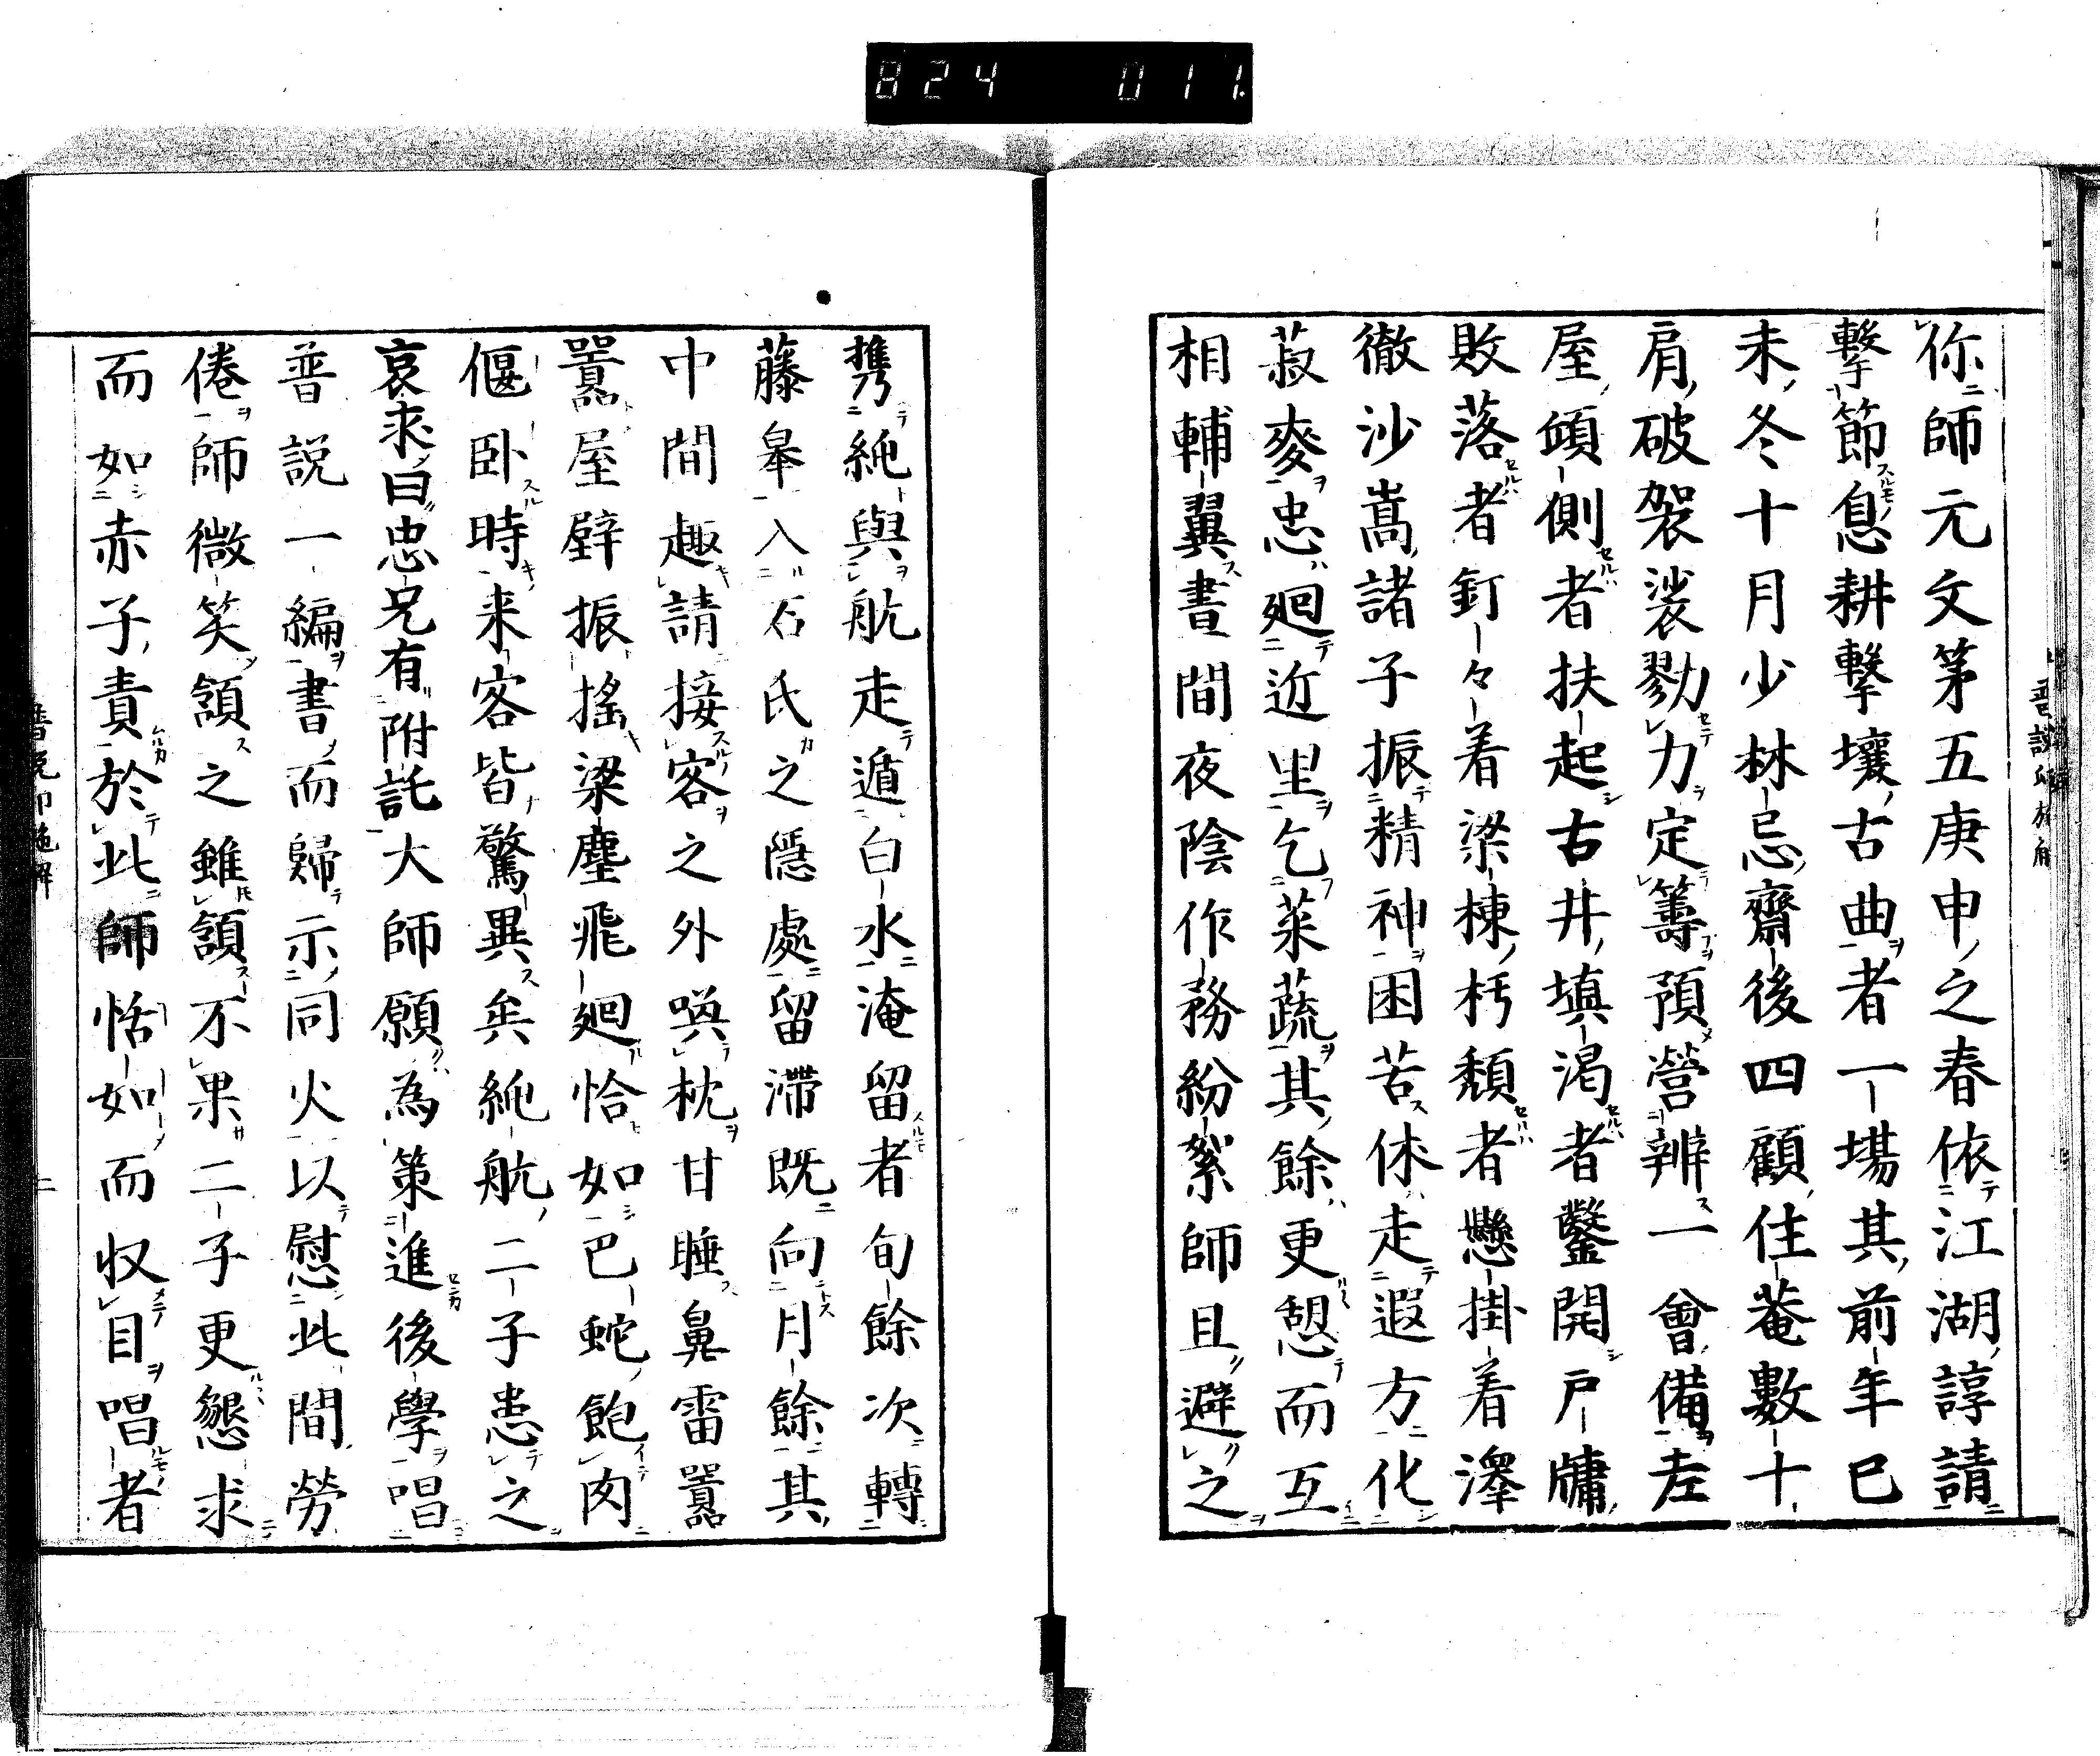 824 011
你師元文第五庚申之春依江湖諄請
擊節息耕擊壤古曲者一塲其前年巳
未冬十月少林忌齋後四顧住菴數十
肩破袈裟勠力定籌預營辨一會備老
屋傾側者扶起古井填渴者鑿開戸牗
敗落者釘々着梁棟朽頽者懸掛着澤
徹沙嵩諸子振精神困苦休走遐方化
菽麥忠廻近里乞菜蔬其餘更憩而互
相輔翼晝間夜陰作務紛絮師且避之
携純與航走遁白水淹留者旬餘次轉
藤皋入石氏之隱處留滯既向月餘其
中間趣請接客之外喚枕甘睡鼻雷囂
囂屋壁振搖梁塵飛廻恰如巴蛇飽肉
偃卧時来客皆驚異矣純航二子患之
哀求曰忠兄有附託大師願為策進後學唱
普説一編書而歸示同火以慰此間勞
倦師微笑頷之雖頷不果二子更懇求
而如赤子責於此師恬如而収目唱者
二